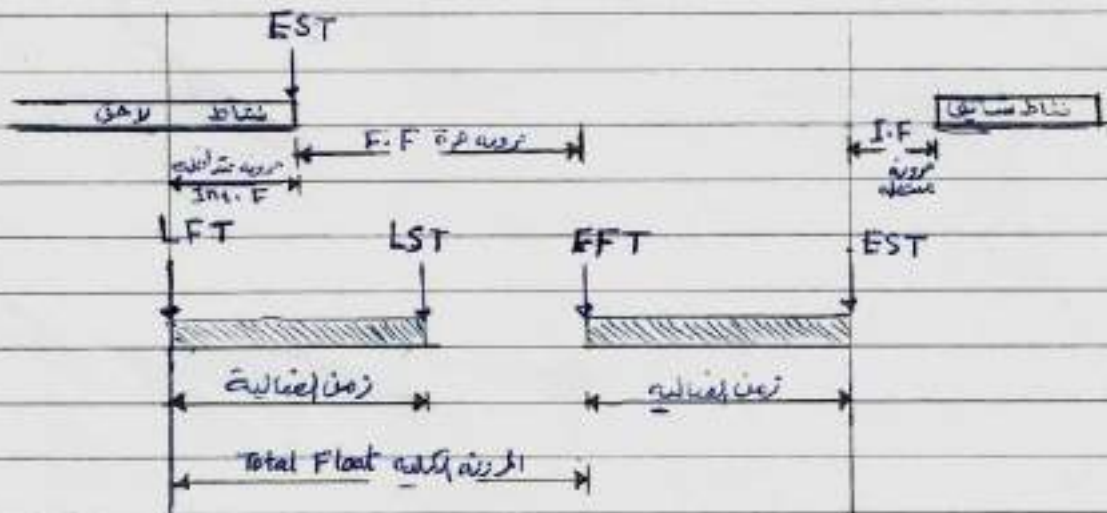 EST
نشاط لاحق
نشاط سابق
مرونه حرة F.F
I.F
مرونة
مستقله
مرونه متداخله
Int. F
LFT LST EFT EST
زمن الفعالية
زمن الفعاليه
Total Float المرونه الكليه